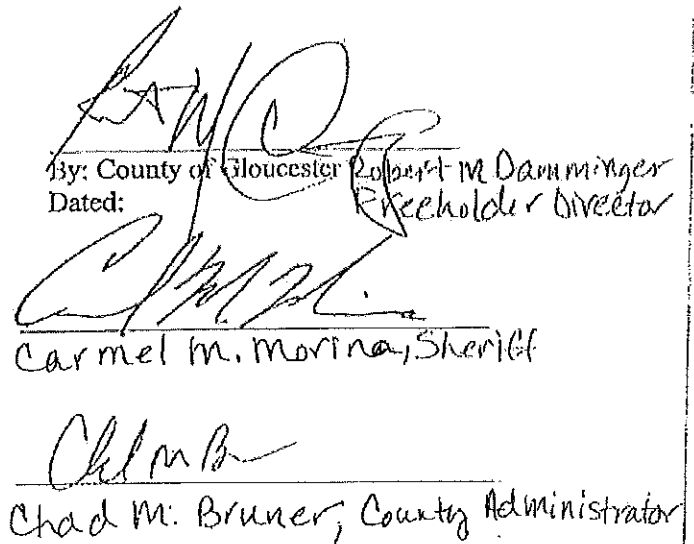 By: County of Gloucester Robert M Damminger
Dated: Freeholder Director
Carmel M. Morina, Sheriff
Chad M. Bruner, County Administrator